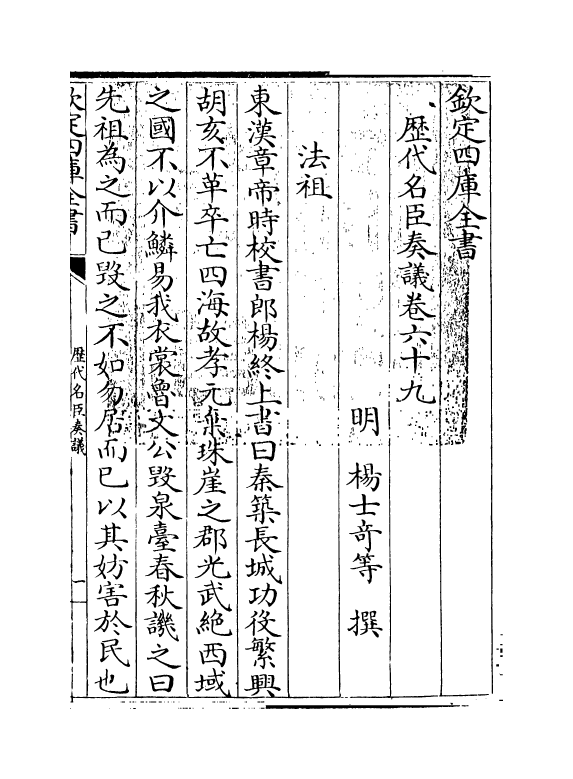 欽定四庫全書
歷代名臣奏議卷六十九
明 楊士奇等 撰
法祖
東漢章帝時校書郎楊終上書曰秦築長城功役繁興
胡亥不革卒亡四海故孝元棄珠崖之郡光武絶西域
之國不以介鱗易我衣裳魯文公毁泉臺春秋譏之曰
先祖為之而已毁之不如勿居而已以其妨害於民也
欽定四庫全書
歷代名臣奏議
一